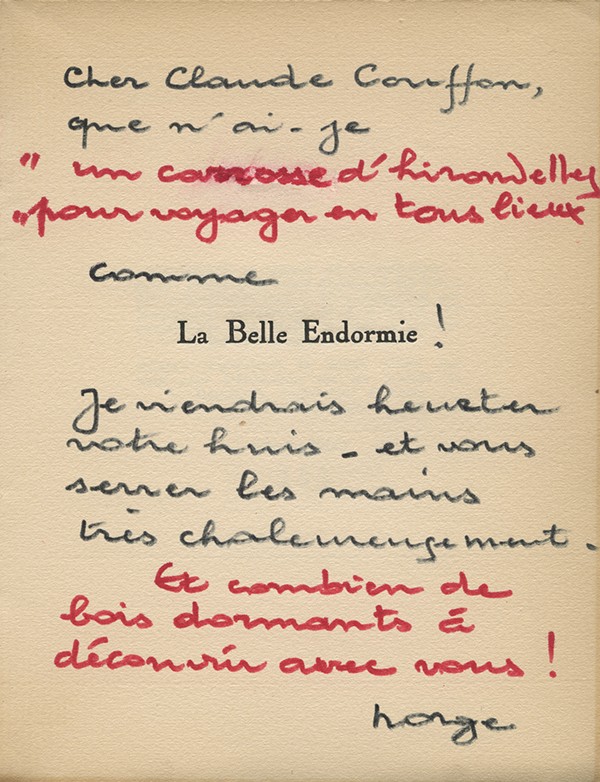 Cher Claude Couffon,
que n'ai-je
" un carrosse d'hirondelles
" pour voyager en tous lieux
comme
La Belle Endormie !
Je viendrais heurter
votre huis - et vous
serrer les mains
très chaleureusement.
Et combien de
bois dormants à
découvrir avec vous !
norge